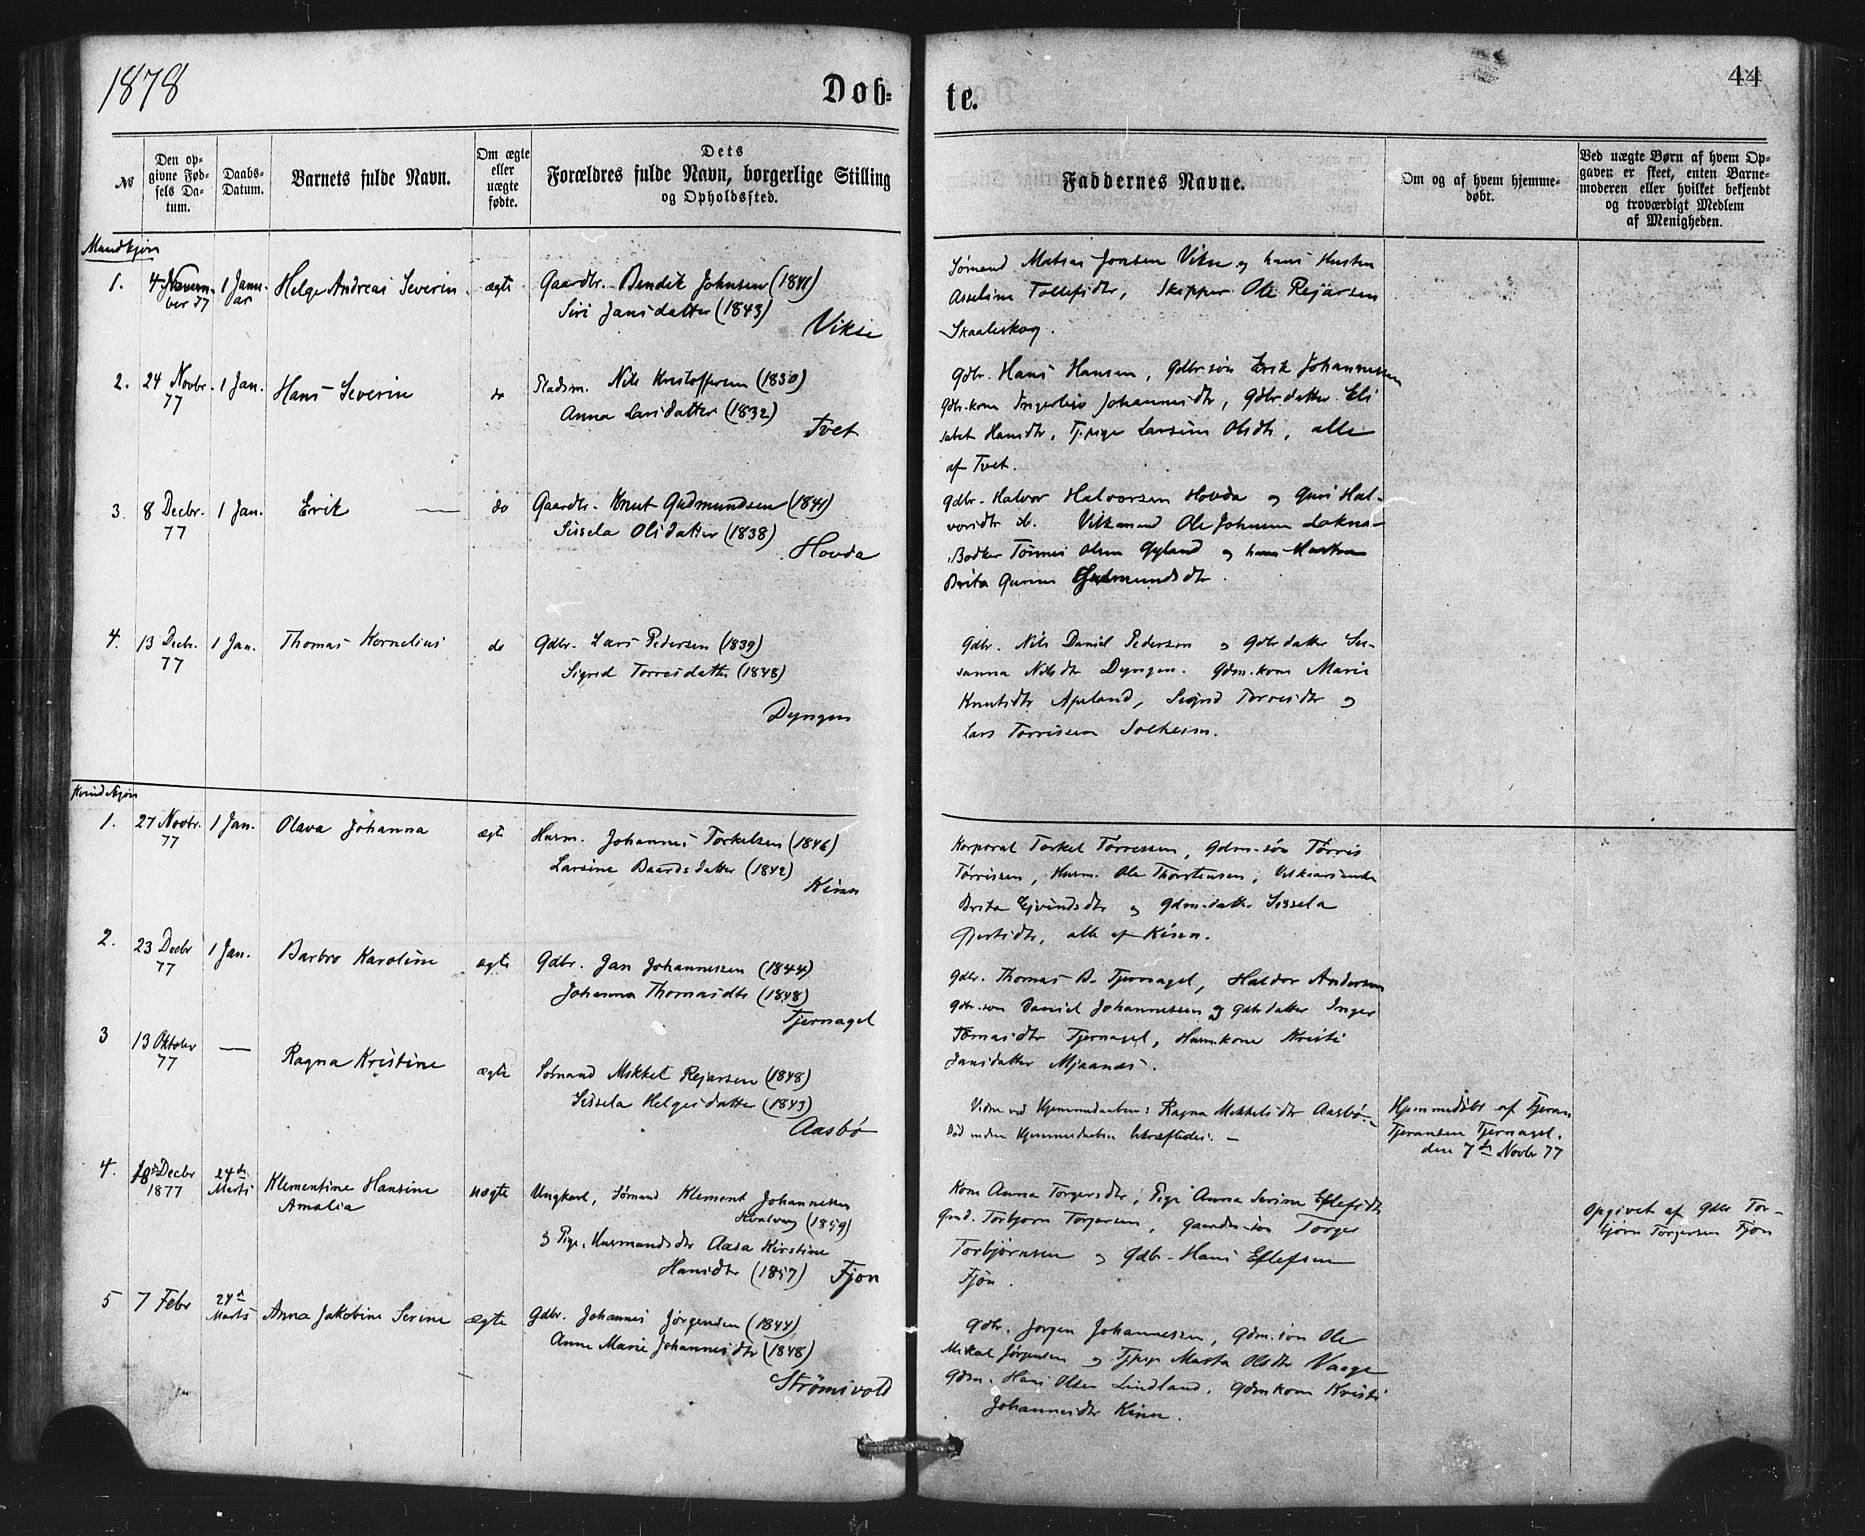 1878
Døb=
te.
44
№
Den op-
givne Fød-
sels Da-
tum.
Daabs-
Datum.
Barnets fulde Navn.
Om ægte
eller
uægte
fødte.
Dets
Forældres fulde Navn, borgerlige Stilling
og Opholdssted.
Faddernes Navne.
Om og af hvem hjemme-
døbt.
Ved uægte Børn af hvem Op-
gaven er skeet, enten Barne-
moderen eller hvilket bekjendt
og troværdigt Medlem
af Menigheden.
Mandkjøn
1. 4 Novem- 1 Janu- Helge Andreas Severin ægte Gaardbr. Bendik Johnsen (1841)
ber 77 ar Siri Jansdatter (1843)
Vikse
Sømand Matias Jonsen Vikse og hans Hustru
Asseline Tollefsdtr, Skipper Ole Rejarsen
Skaaleskog.
2. 24 Novbr. 1 Jan. Hans Severin do Pladsm. Nils Kristoffersen (1830)
77 Anna Larsdatter (1832)
Tvet
Gdbr. Hans Hansen, Gdbr.søn Erik Johannesen
Gdbr.kone Ingerlise Johannesdtr, Gdbr.datter Eli
sabet Hansdtr, Tj.pige Larsine Olsdtr, alle
af Tvet.
3. 8 Decbr. 1 Jan. Erik — do Gaardbr. Knut Gudmundsen (1841)
77 Sissela Olsdatter (1838)
Hovda
Gdbr. Halvor Halvorsen Hovda og Guri Hal-
vorsdtr ib. Ole Johnsen
Bødker Tønnes Olsen Gyland og hans Hustru
Brita Gurine Gudmundsdtr.
4. 13 Decbr. 1 Jan. Thomas Kornelius do Gdbr. Lars Pedersen (1839)
77 Sigrid Torresdatter (1848)
Dyngen
Gdbr. Nils Daniel Pedersen og Gdbr datter Su-
sanna Nilsdtr Dyngen. Gdm.kone Marie
Knutsdtr Apeland, Sigrid Torresdtr og
Lars Torrissen Solheim.
Kvindekjøn
1. 27 Novbr. 1 Jan. Olava Johanna ægte Husm. Johannes Torkelsen (1846)
77 Larsine Baardsdatter (1842)
Kinn
Korporal Torkel Torressen, Gdm.søn Tørris
Tørrissen, Husm. Ole Thorstensen,
Brita Ejvindsdtr og Gdm.datter Sissela
Gjertsdtr, alle af Kinn.
2. 23 Decbr 1 Jan. Barbro Karoline ægte Gdbr. Jan Johannessen (1844)
77 Johanna Thomasdtr (1848)
Tjernagel
Gdbr. Thomas B. Tjernagel, Haldor Andersen
Gdbr.søn Daniel Johannessen og Gdbrdatter Inger
Tomasdtr Tjernagel, Husm.kone Kristi
Jansdatter Mjaanes.
3 13 Oktober — Ragna Kristine ægte Sømand Mikkel Rejarsen (1848)
77 Sissela Helgesdatter (1843)
Aasbø
Vidne ved Hjemmedaaben: Ragna Mikkelsdtr Aasbø.
Død inden Hjemmedaaben bekræftedes. —
Hjemmedøbt af
Tjernagel.
den 7de Novbr 77
4. 18 Decbr 24de Klementine Hansine uægte Ungkarl, Sømand Klement Johannessen
1877 Marts Amalia (1859)
og Pige, Husmandsdtr Aasa Kirstine
Hansdtr (1857) Fjon
Kone Anna Torgersdtr, Pige Anna Serine Eflefsdtr
Gmd. Torbjørn Torgersen, Gaardm.søn Torger
Torbjørnsen og Gdbr. Hans Eflefsen
Fjøn.
Opgivet af Gdbr Tor-
bjørn Torgersen Fjon
5 7 Febr 24de Anna Jakobine Serine ægte Gdbr. Johannes Jørgensen (1844)
Marts Anne Marie Johannesdtr (1848)
Strømsvold
Gdbr. Jørgen Johannessen, Gdm.søn Ole
Mikal Jørgensen og Tj.pige Marta Olsdtr Vaage
Gdm. Hans Olsen Lindland, Gdmkone Kristi
Johannesdtr Kinn.